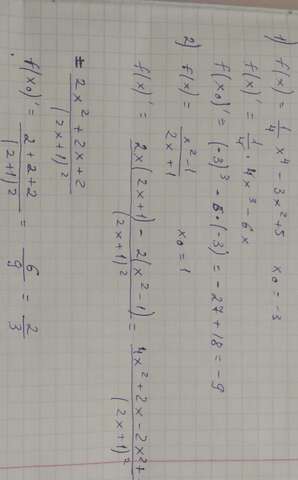 1) f(x) = 1/4 x⁴ - 3x² + 5   x₀ = -3
f(x)' = 1/4 · 4x³ - 6x
f(x₀)' = (-3)³ - 6·(-3) = -27 + 18 = -9
2) f(x) = x² - 1 / 2x + 1   x₀ = 1
f(x)' = 2x(2x+1) - 2(x² - 1) / (2x+1)² = 4x² + 2x - 2x² + / (2x+1)²
= 2x² + 2x + 2 / (2x+1)²
f(x₀)' = 2 + 2 + 2 / (2+1)² = 6/9 = 2/3